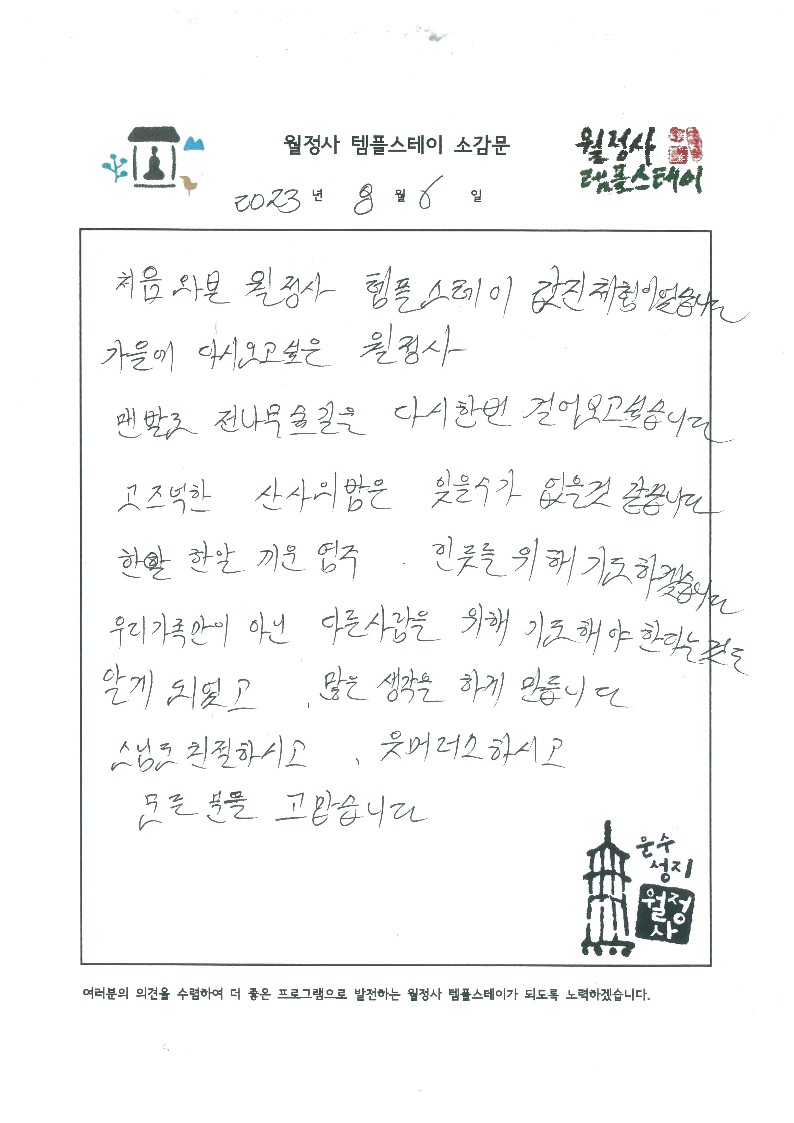 월정사 템플스테이 소감문
월정사
템플스테이
2023 년 8 월 6 일
처음 와본 월정사 템플스테이 값진체험이었습니다
가을에 다시오고싶은 월정사
맨발로 전나무숲길을 다시한번 걸어오고싶습니다
고즈넉한 산사의밤은 잊을수가 없을것 같습니다
한알 한알 끼운 염주 . 인류를 위해 기도하겠습니다
우리가족만이 아닌 다른사람을 위해 기도해야 한다는것도
알게 되었고 , 많은 생각을 하게 만듭니다
스님도 친절하시고 , 웃머러스하시고
모든 분들 고맙습니다
문수
성지
월정
사
여러분의 의견을 수렴하여 더 좋은 프로그램으로 발전하는 월정사 템플스테이가 되도록 노력하겠습니다.